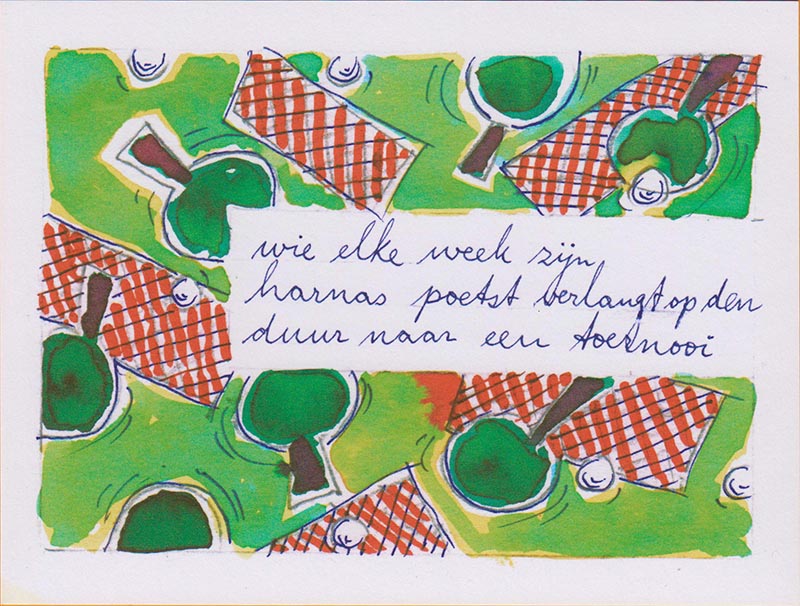 wie elke week zijn
harnas poetst verlangt op den
duur naar een toernooi